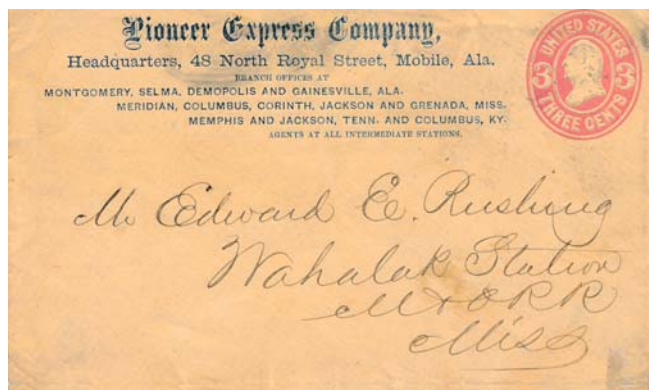 Pioneer Express Company,
Headquarters, 48 North Royal Street, Mobile, Ala.
BRANCH OFFICES AT
MONTGOMERY, SELMA, DEMOPOLIS AND GAINESVILLE, ALA.
MERIDIAN, COLUMBUS, CORINTH, JACKSON AND GRENADA, MISS.
MEMPHIS AND JACKSON, TENN. AND COLUMBUS, KY.
AGENTS AT ALL INTERMEDIATE STATIONS.
UNITED STATES
3 3
THREE CENTS
Mr Edward E. Rushing
Wahalak Station
M & O R R
Miss